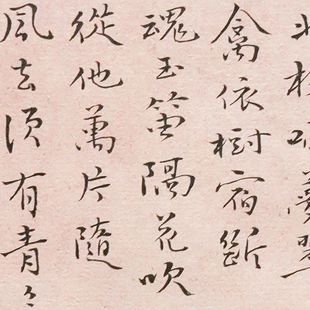 夢
禽依樹宿斷
魂玉笛隔花吹
從他萬片隨
風去須有青々